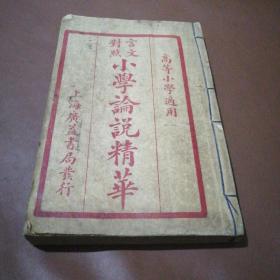 高等小學適用
言文對照
小學論說精華
上海廣益書局發行